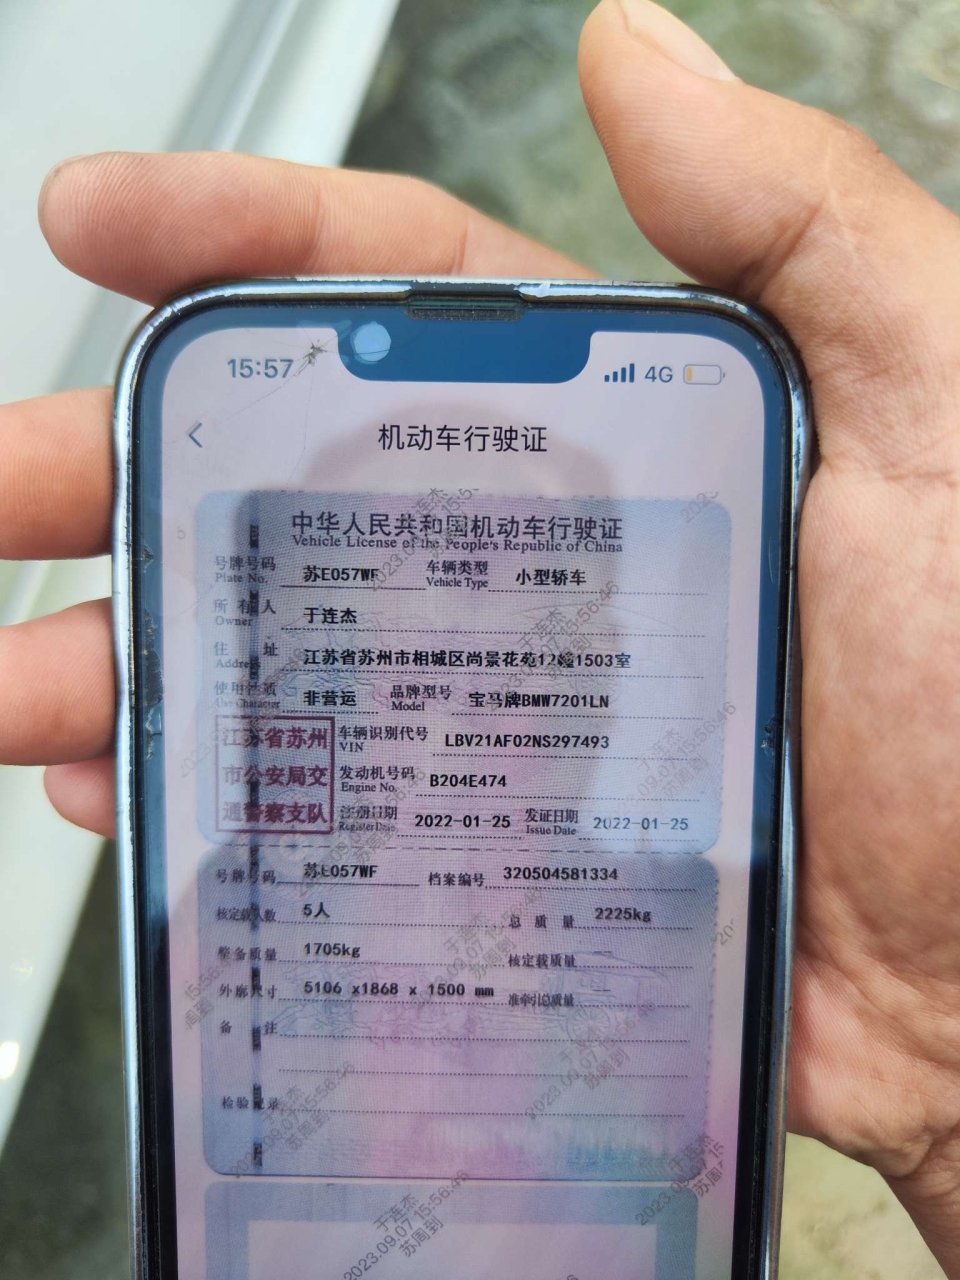 15:57
4G
机动车行驶证
中华人民共和国机动车行驶证
Vehicle License of the People's Republic of China
号牌号码 苏E057WF 车辆类型 小型轿车
Plate No. Vehicle Type
所有人 于连杰
Owner
住址 江苏省苏州市相城区尚景花苑12幢1503室
Address
使用性质 非营运 品牌型号 宝马牌BMW7201LN
Use Character Model
江苏省苏州 车辆识别代号 LBV21AF02NS297493
VIN
市公安局交 发动机号码 B204E474
Engine No.
通警察支队 注册日期 2022-01-25 发证日期 2022-01-25
Register Date Issue Date
号牌号码 苏E057WF 档案编号 320504581334
核定载人数 5人 总质量 2225kg
整备质量 1705kg 核定载质量 —
外廓尺寸 5106 x1868 x 1500 mm 准牵引总质量 —
备注
检验记录
于连杰
2023.09.07 15:56:46
苏周到